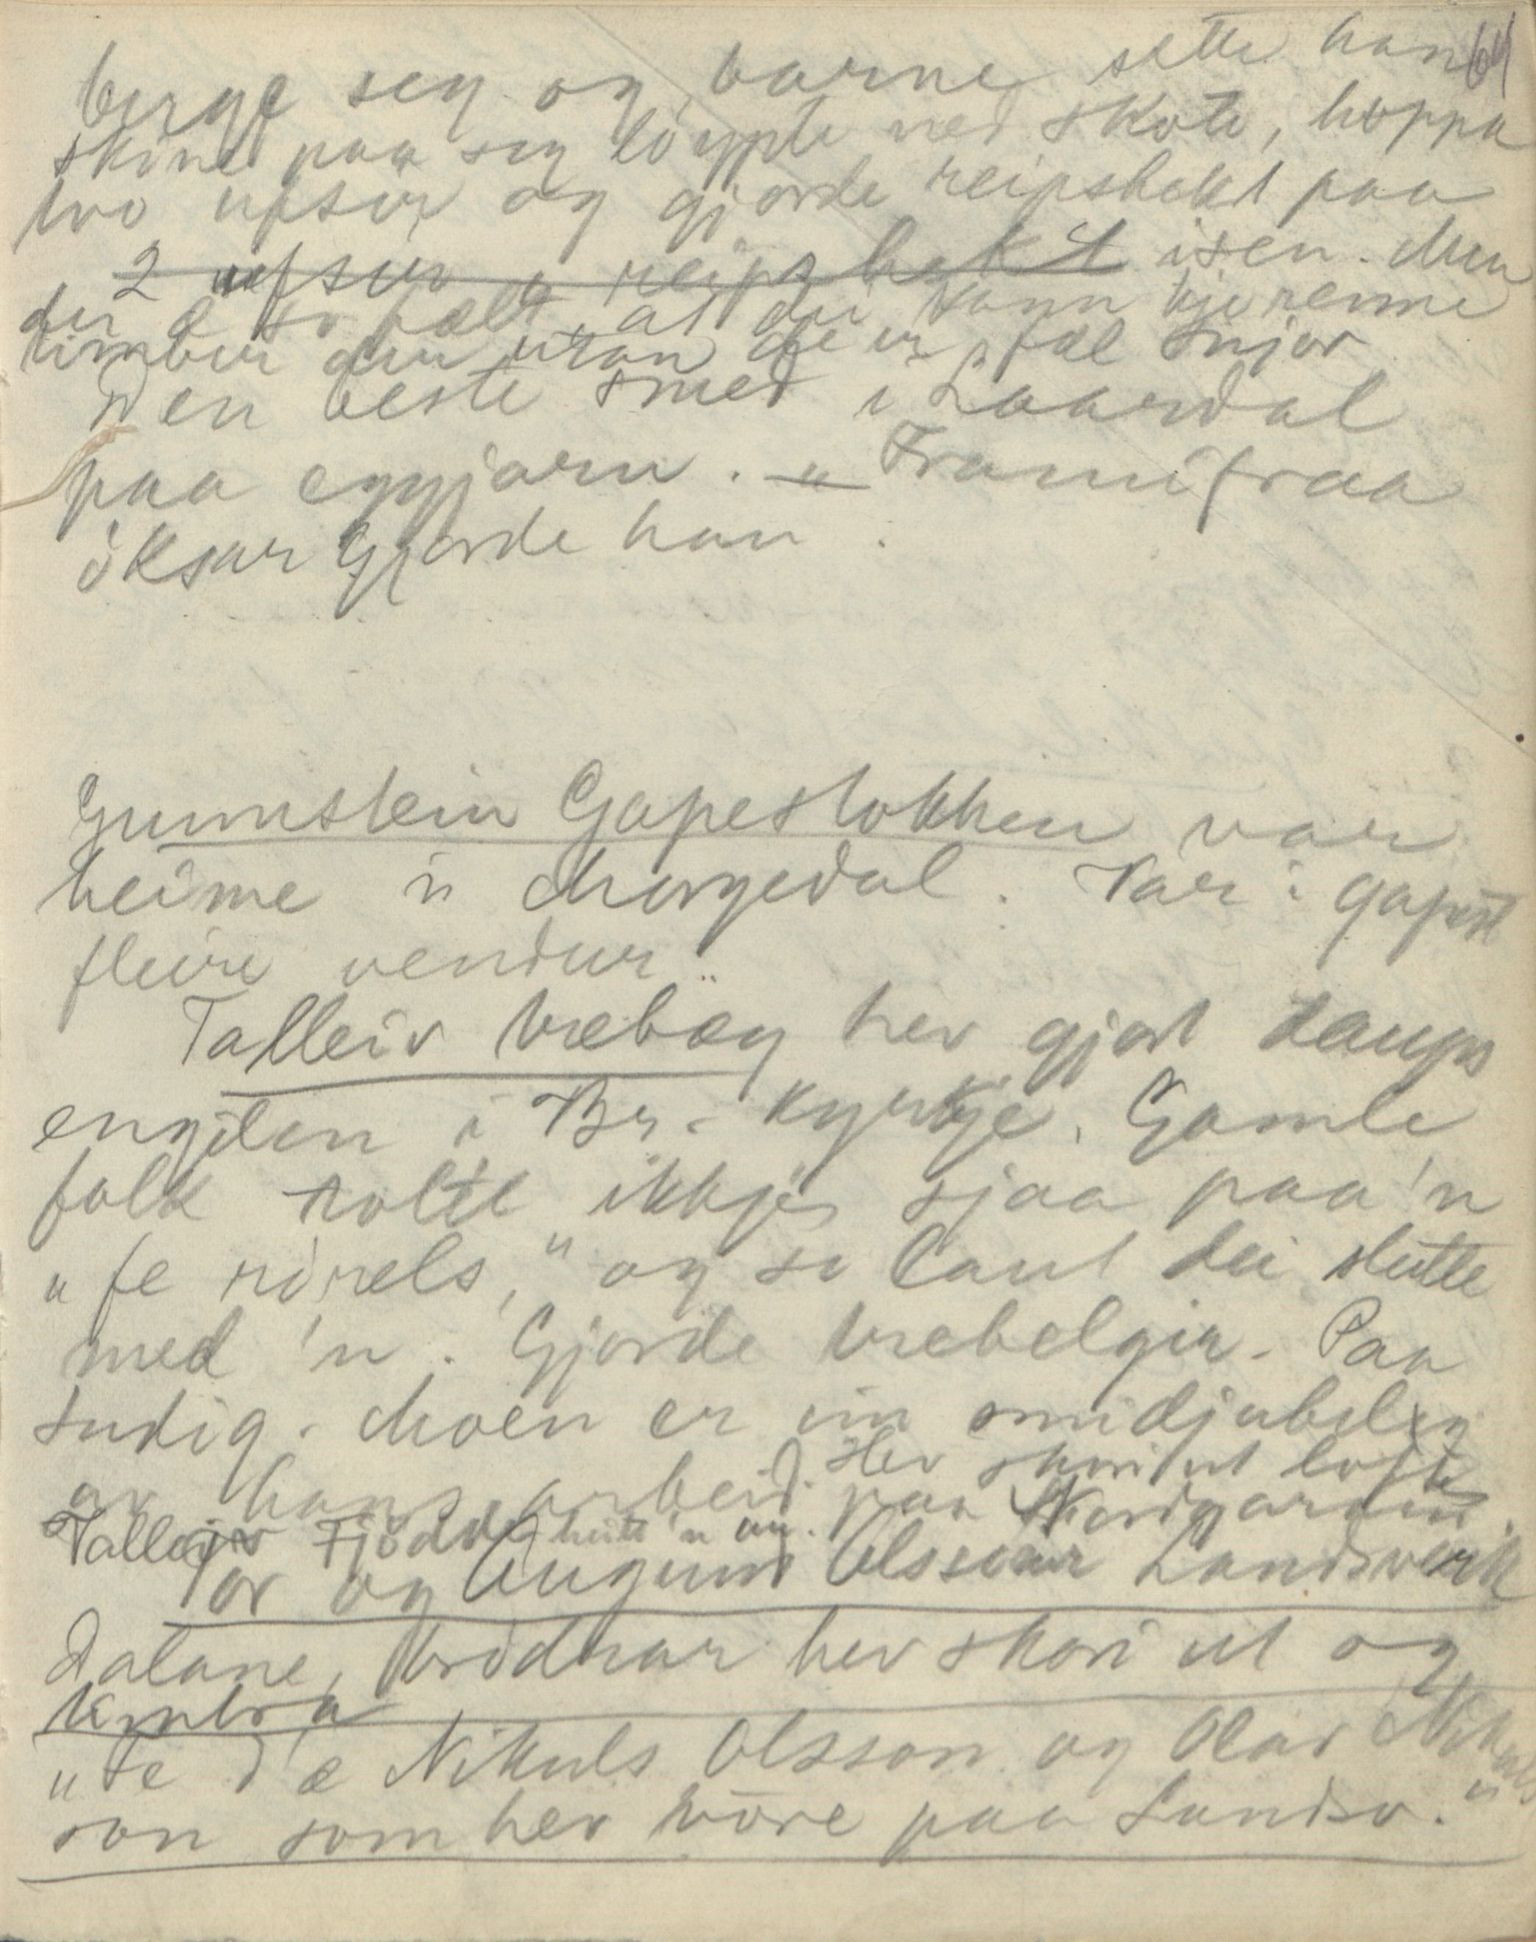 64
berge seg og borne sette han
skine paa seg löypte ned skote, hoppa
tvo ufsir og gjorde reipshekt paa
2 ufsir reipshekt isen. Men
der æ so bælt at dei kann kje renne
timber der utan de er fæl snjor
Den beste smed i Laardal
paa eggjarn. „Framifraa
öksar gjorde han.
Gunnstein Gapestokken var
heime i Morgedal. Var i gapest
fleire vendur.
Talleiv Træbæg hev gjort daups
engilen i Br. kyrkje. Gamle
folk tolte ikkje sjaa paa 'n
„fe rirels," og so laut dei slutte
med 'n. Gjorde træbelgir. Paa
Sudig. Moen er ein smidjubelg
av hans arbeid. Hev skori ut lofte
Talleiv Fjöddo heitt'n au. paa Nordgarden.
Tor og Augund Olssönar Landsverk
Dalane, brödrar hev skori ut og
timbra
„De d'æ Nikuls Olsson og Olav Nikuls
son som hev vöre paa Landsv."